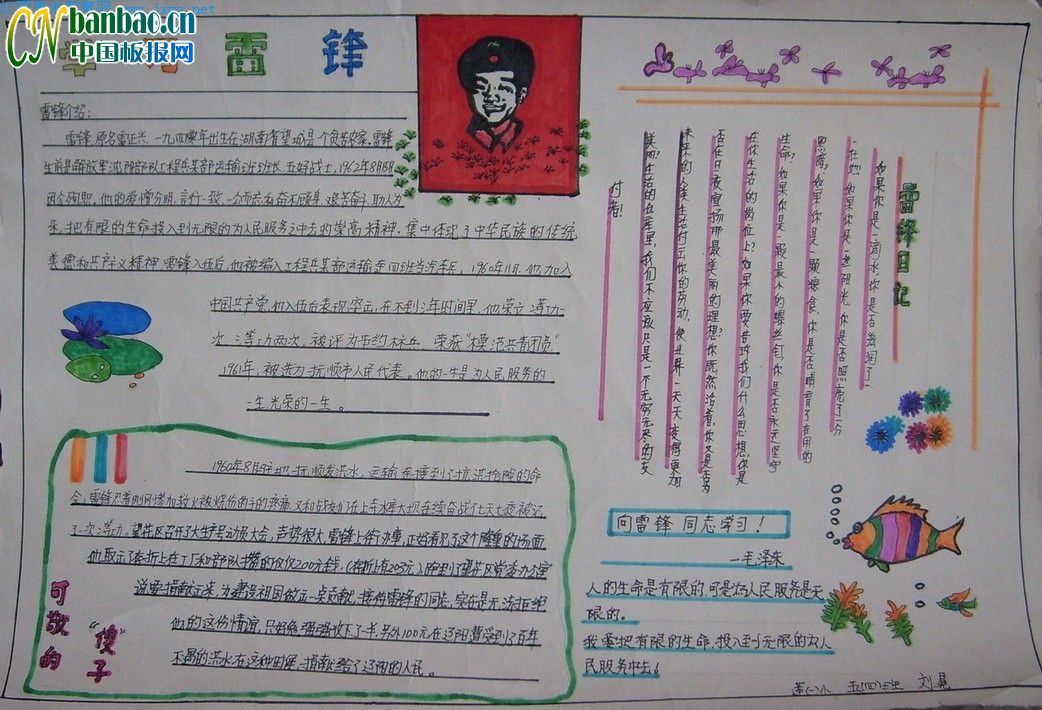 www.jxps.net
CN banbao.cn
中国板报网
学习雷锋
雷锋介绍:
雷锋,原名雷正兴,一九四零年出生在湖南省望城县一个贫苦农家,雷锋
生前是解放军沈阳部队工程兵某部运输班班长,五好战士,1962年8月15日
因公殉职。他的爱憎分明,言行一致,公而忘私,奋不顾身,艰苦奋斗,助人为
乐,把有限的生命投入到无限的为人民服务之中去的崇高精神,集中体现了中华民族的传统
美德和共产主义精神.雷锋入伍后,他被编入工程兵某部运输连四班当汽车兵,1960年11月,他加入
中国共产党.他入伍后表现突出,在不到3年时间里,他荣立二等功一
次,三等功两次,被评为节约标兵,荣获“模范共青团员”
1961年,被选为抚顺市人民代表。他的一生是为人民服务的
一生,光荣的一生。
可敬的“傻”子
1960年8月,驻地抚顺发洪水,运输连接到了抗洪抢险的命
令,雷锋忍着刚刚参加救火被烧伤的手的疼痛又和战友们在上寺水库大坝连续奋战七天七夜,被记
了一次二等功。望花区召开了大生产号召动员大会,声势很大,雷锋上街办事,正好看见了这个隆重的场面
他取出了存折上在工厂和部队攒的仅仅200元钱(存折上有203元),跑到了望花区党委办公室
说要捐献出来,为建设祖国做点一些贡献,接待雷锋的同志,实在是无法拒绝
他的这份情谊,只好勉强收下了一半.另外100元在辽阳遭受到了百年
不遇的洪水,在这种时候,捐献给了辽阳的人民。
雷锋日记
如果你是一滴水,你是否滋润了一
寸土地?如果你是一线阳光,你是否照亮了一分
黑暗?如果你是一颗粮食,你是否哺育了有用的
生命?如果你是一颗最小的螺丝钉,你是否永远坚守
在你生活的岗位上?如果你要告诉我们什么思想,你是
否在日夜宣扬那最美丽的理想?你既然活着,你又是否为
未来的人类生活付出你的劳动,使世界一天天变得更加
美丽?生活的仓库里,我们不应该只是一个无穷无尽的支
付者!
向雷锋同志学习!
—毛泽东
人的生命是有限的,可是为人民服务是无
限的。
我要把有限的生命,投入到无限的为人
民服务中去!
五(四)班